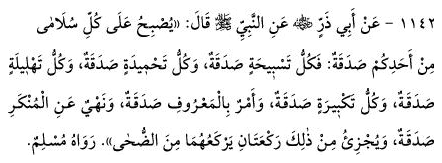 ١١٤٢ - عَنْ أَبِي ذَرٍّ ﷺ عَنِ النَّبِيِّ ﷺ قَالَ: «يُصْبِحُ عَلَى كُلِّ سُلَامَى
مِنْ أَحَدِكُمْ صَدَقَةٌ: فَكُلُّ تَسْبِيحَةٍ صَدَقَةٌ، وَكُلُّ تَحْمِيدَةٍ صَدَقَةٌ، وَكُلُّ تَهْلِيلَةٍ
صَدَقَةٌ، وَكُلُّ تَكْبِيرَةٍ صَدَقَةٌ، وَأَمْرٌ بِالْمَعْرُوفِ صَدَقَةٌ، وَنَهْيٌ عَنِ الْمُنْكَرِ
صَدَقَةٌ، وَيُجْزِئُ مِنْ ذَلِكَ رَكْعَتَانِ يَرْكَعُهُمَا مِنَ الضُّحَى». رَوَاهُ مُسْلِمٌ.